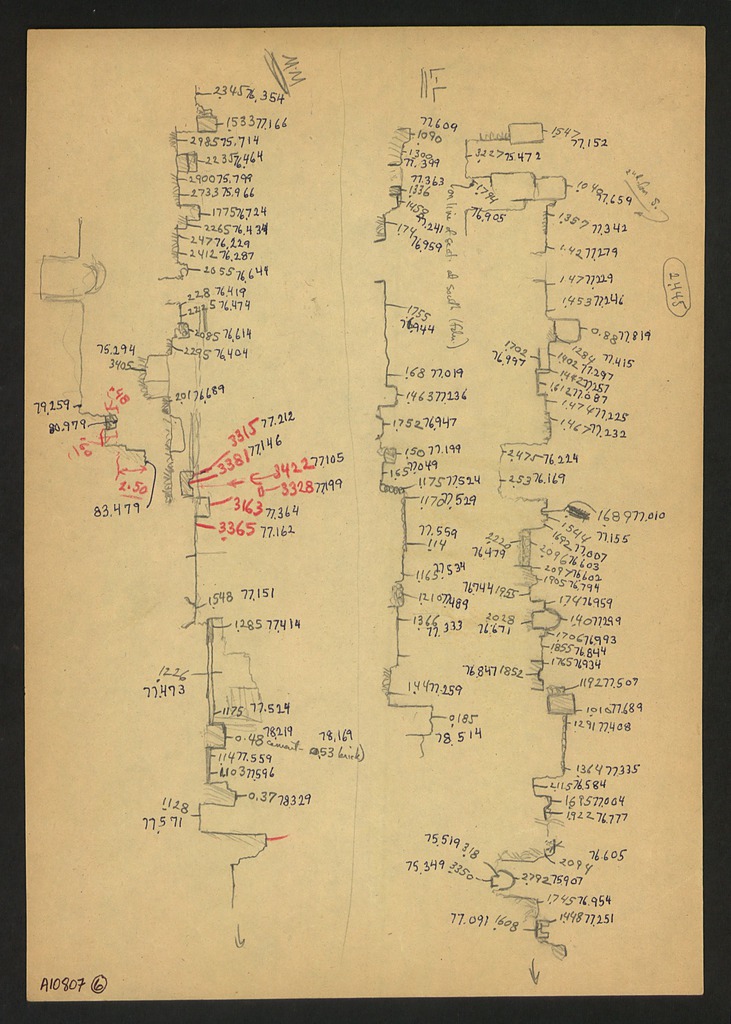 M-M
2345 76,354
1533 77.166
2985 75.714
2235 76.464
2900 75.799
2733 75.966
1775 76.724
2265 76.434
2476 76.229
2412 76.287
2055 76.644
228 76.419
2225 76.474
2085 76.614
2295 76.404
75.294
3405
201 76.689
79.259
80.979
.48
1.50
2.50
83.479
3315 77.212
3381 77.146
3422 77.105
3328 77.199
3163 77.364
3365 77.162
1548 77.151
1285 77.414
1226
77.473
1175 77.524
78.219
0.48 cement
78.169
0.53 brick)
114 77.559
1103 77.596
0.37 78.329
1128
77.571
L-L
77.609
1090
1300
77.399
77.363
1336
1458
77.241
174
76.959
(on line of sect. at south
1755
76.944
168 77.019
1463 77.236
1752 76.947
150 77.199
165 77.049
1175 77.524
1170 77.529
77.559
114
77.534
1165
1210 77.489
1366
77.333
144 77.259
0.185
78.514
1547
77.152
3227 75.472
1794
76.905
1040
77.659
1357 77.342
142 77.279
147 77.229
1453 77.246
2.445
0.88 77.819
1284
77.415
1702
76.997
1402 77.297
1442 77.257
1612 77.087
1474 77.225
1467 77.232
2475 76.224
253 76.169
1689 77.010
1544 77.155
1692 77.007
2220
76.479
2096 76.603
2097 76.602
1905 76.794
76.744 1955
174 76.959
2028
76.671
140 77.299
1706 76.993
1855 76.844
1765 76.934
76.847 1852
1192 77.507
1010 77.689
1291 77.408
1364 77.335
2115 76.584
1695 77.004
1922 76.777
76.605
2094
75.519 318
75.349 3350
2792 75.907
1745 76.954
1448 77.251
77.091 1608
A10807 6